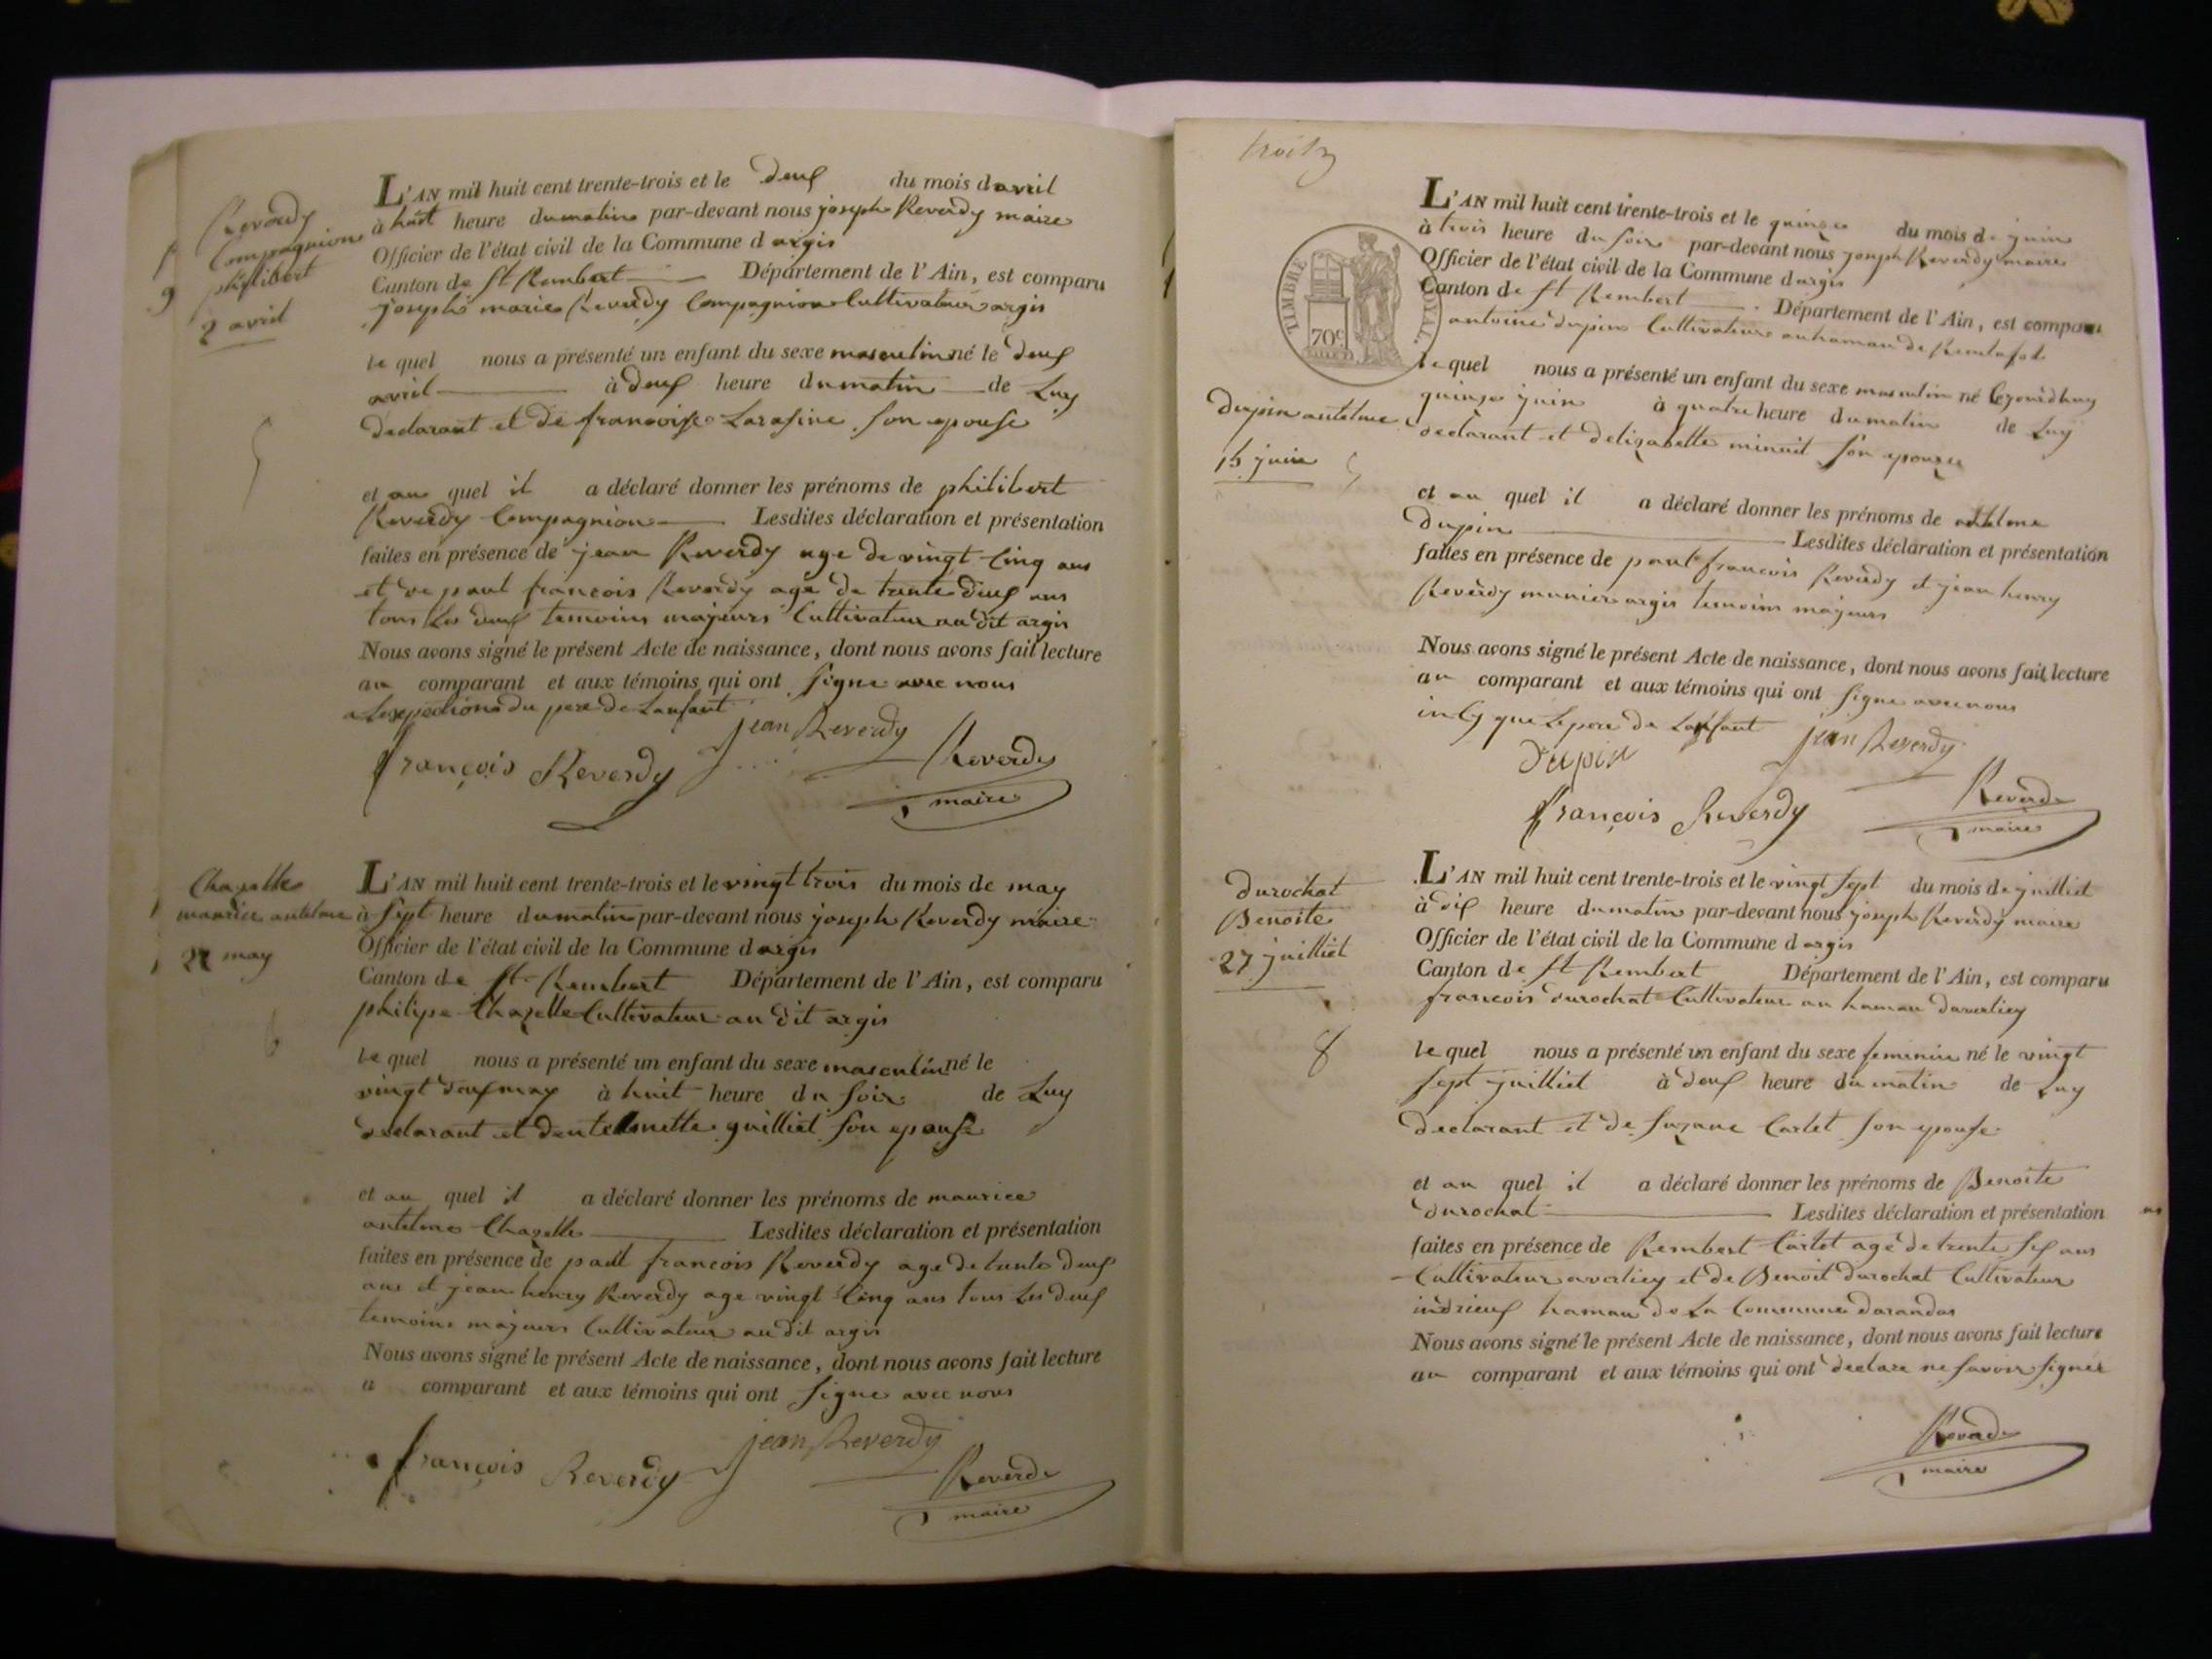 Reverdy
Compagnion
philibert
2 avril
L'AN mil huit cent trente-trois et le deux du mois d avril
à huit heure du matin par-devant nous joseph Reverdy maire
Officier de l'état civil de la Commune d argis
Canton de St Rembert Département de l'Ain, est comparu
joseph marie Reverdy Compagnion Cultivateur argis
le quel nous a présenté un enfant du sexe masculin né le deux
avril à deux heure du matin de Luy
declarant et de francoise Larafine son epouse
et au quel il a déclaré donner les prénoms de philibert
Reverdy Compagnion Lesdites déclaration et présentation
faites en présence de jean Reverdy age de vingt Cinq ans
et de paul francois Reverdy age de trente deux ans
tous Les deux temoins majeurs Cultivateur au dit argis
Nous avons signé le présent Acte de naissance, dont nous avons fait lecture
au comparant et aux témoins qui ont signe avec nous
a Lexpetions du pere de Lanfant
jean Reverdy
françois Reverdy
Reverdy
maire
5
Chazelle
maurice antelme
22 may
6
L'AN mil huit cent trente-trois et le vingt trois du mois de may
à sept heure du matin par-devant nous joseph Reverdy maire
Officier de l'état civil de la Commune d argis
Canton de St Rembert Département de l'Ain, est comparu
philipe Chazelle Cultivateur au dit argis
le quel nous a présenté un enfant du sexe masculin né le
vingt deux may à huit heure du soir de Luy
declarant et guilliet son epouse
et au quel il a déclaré donner les prénoms de maurice
antelme Chazelle Lesdites déclaration et présentation
faites en présence de paul francois Reverdy age de trente deux
ans et jean henry Reverdy age vingt Cinq ans tous Les deux
temoins majeurs Cultivateur au dit argis
Nous avons signé le présent Acte de naissance, dont nous avons fait lecture
a comparant et aux témoins qui ont signe avec nous
jean Reverdy
françois Reverdy
Reverdy
maire
trois
TIMBRE ROYAL.
70c
Dupin antelme
15 juin
L'AN mil huit cent trente-trois et le quinze du mois de juin
à trois heure du soir par-devant nous joseph Reverdy maire
Officier de l'état civil de la Commune d argis
Canton de St Rembert Département de l'Ain, est comparu
antoine dupin Cultivateur au hamau de
le quel nous a présenté un enfant du sexe masculin né
quinze juin à quatre heure du matin de Luy
declarant et delizabette minuit son epouze
et au quel il a déclaré donner les prénoms de antelme
dupin Lesdites déclaration et présentation
faites en présence de paul francois Reverdy et jean henry
Reverdy munier argis temoins majeurs
Nous avons signé le présent Acte de naissance, dont nous avons fait lecture
au comparant et aux témoins qui ont signe avec nous
insy que Le pere de Lanfant
Dupin
jean Reverdy
françois Reverdy
Reverdy
maire
durochat
Benoite
27 juilliet
8
L'AN mil huit cent trente-trois et le vingt sept du mois de juilliet
à dix heure du matin par-devant nous joseph Reverdy maire
Officier de l'état civil de la Commune d argis
Canton de St Rembert Département de l'Ain, est comparu
francois durochat Cultivateur au hamau daverliey
le quel nous a présenté un enfant du sexe feminin né le vingt
sept juilliet à deux heure du matin de Luy
declarant et de suzane Carlet son epouse
et au quel il a déclaré donner les prénoms de Benoite
durochat Lesdites déclaration et présentation
faites en présence de Rembert Carlet age de trente six ans
Cultivateur averliey et de Benoit durochat Cultivateur
indrieux hamau de La Commune darandas
Nous avons signé le présent Acte de naissance, dont nous avons fait lecture
au comparant et aux témoins qui ont declare ne savoir signer
Reverdy
maire